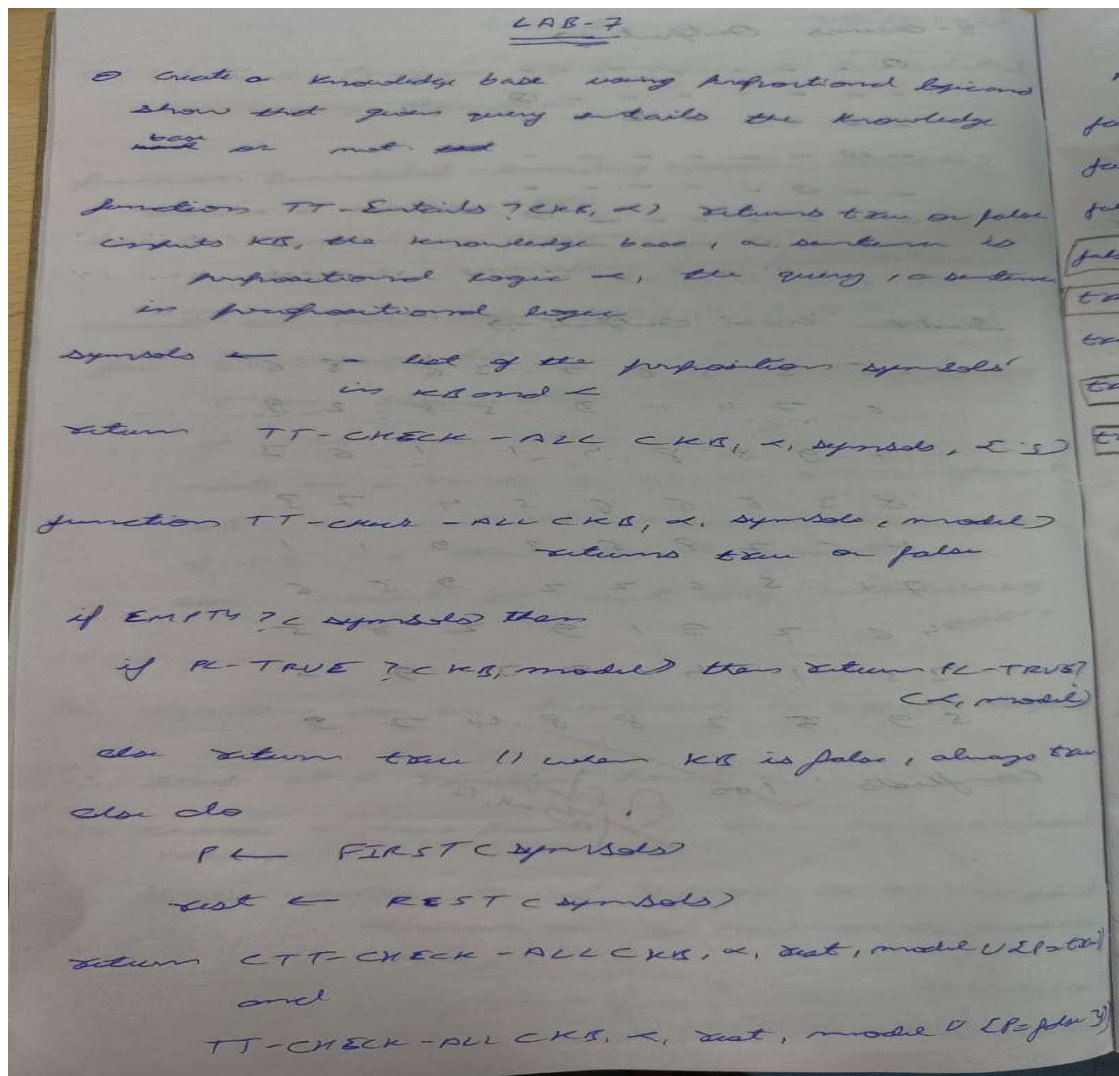 LAB-7
Create a Knowledge base using Propositional logic and
show that given query entails the knowledge
base or not.
function TT-Entails ? (KB, α) returns true or false
inputs KB, the knowledge base, a sentence is
propositional logic α, the query, a sentence
in propositional logic
symbols ← a list of the proposition symbols
in KB and α
return TT-CHECK-ALL (KB, α, symbols, { })
function TT-check-ALL (KB, α, symbols, model)
returns true or false
if EMPTY ? (symbols) then
if PL-TRUE ? (KB, model) then return PL-TRUE?
(α, model)
else return true // when KB is false, always true
else do
P ← FIRST (symbols)
rest ← REST (symbols)
return (TT-CHECK-ALL (KB, α, rest, model ∪ {P=true})
and
TT-CHECK-ALL (KB, α, rest, model ∪ {P=false})